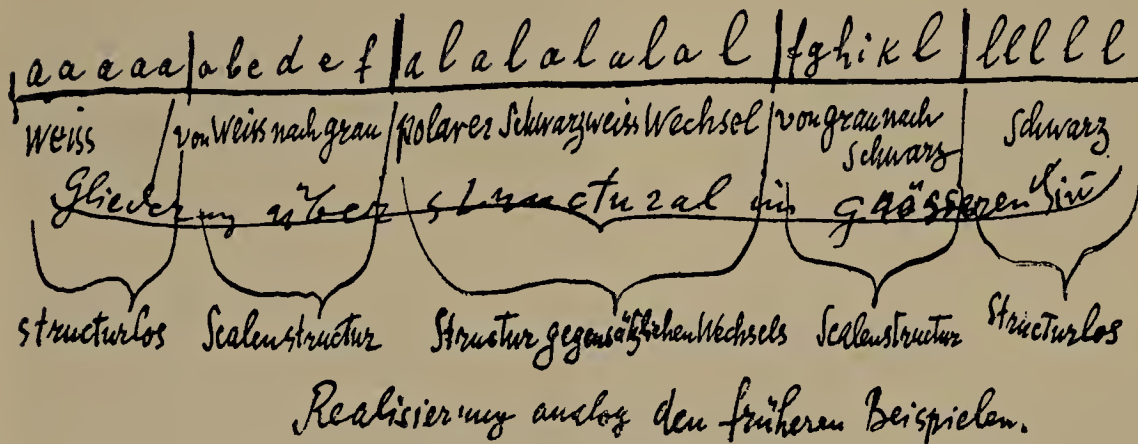 a a a a a | a b c d e f | a l a l a l a l a l | f g h i k l | l l l l l
Weiss | von Weiss nach grau | polarer Schwarzweiss Wechsel | von grau nach Schwarz | Schwarz
Gliederung über structural im grösseren Sin̄
structurlos Scalenstructur Structur gegensätzlichen Wechsels Scalenstructur Structurlos
Realisierung analog den früheren Beispielen.